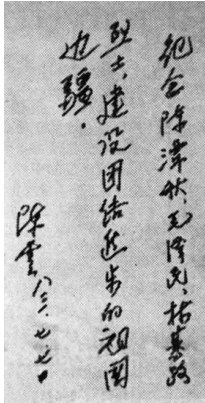 纪念陈潭秋、毛泽民、林基路
烈士,建设团结进步的祖国
边疆。
陈云 八三、七、七日